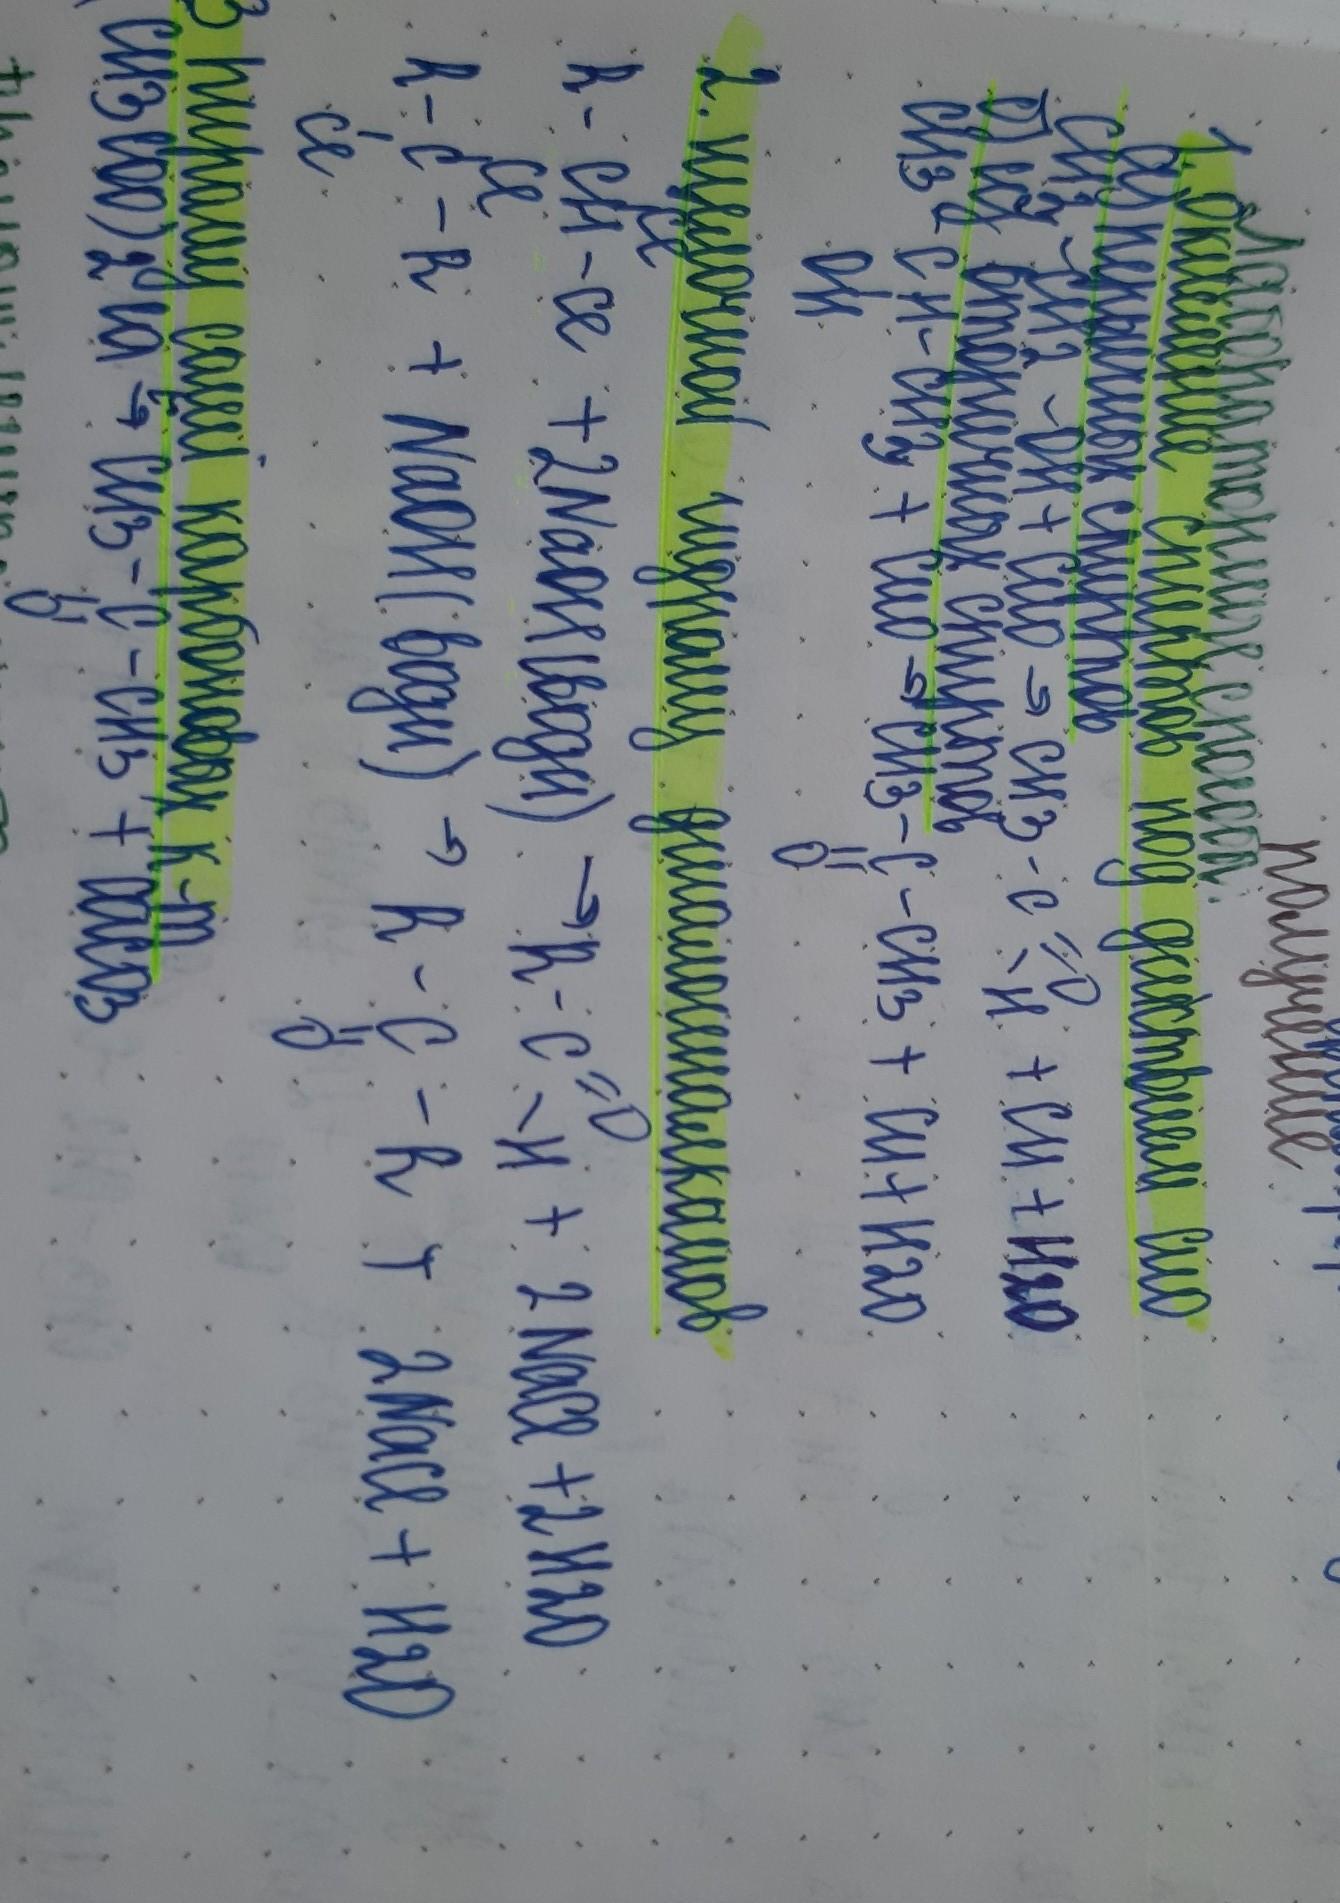 получение
Лабораторные способы:
1. Окисление спиртов под действием CuO
а) первичных спиртов
CH3-CH2-OH + CuO → CH3-C=O-H + Cu + H2O
б) вторичных спиртов
CH3-CH-CH3 + CuO → CH3-C-CH3 + Cu + H2O
OH O
2. щелочной гидролиз дигалогеналканов
Cl
R-CH-Cl + 2NaOH(водн) → R-C=O-H + 2NaCl + 2H2O
Cl
R-C-R + NaOH(водн) → R-C-R + 2NaCl + H2O
Cl O
3 пиролиз солей карбоновых к-т
(CH3COO)2Ca →t CH3-C-CH3 + CaCO3
O